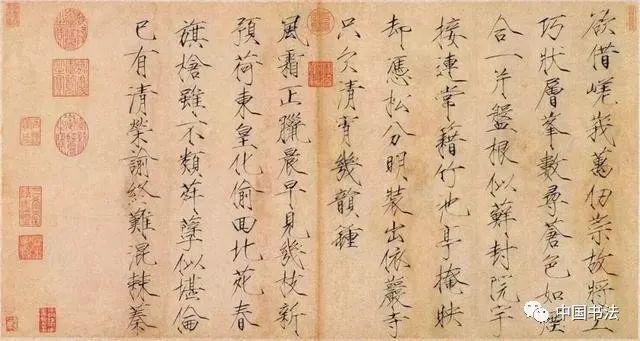 欲借嵯峩萬仞崇故將工
巧狀層峯數尋蒼色如煙
合一片盤根似蘚封院宇
接連常籍竹池亭掩映
却憑松分明裝出依巖寺
只欠清宵幾韻鍾
風霜正臘晨早見幾枝新
預荷東皇化偷回北苑春
旗槍雖不類荈孽似堪倫
已有清榮諭終難混棘蓁
中国书法